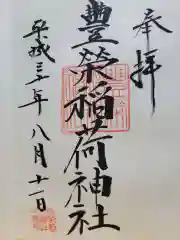 奉拝
豐榮稲荷神社
平成三十年八月十一日